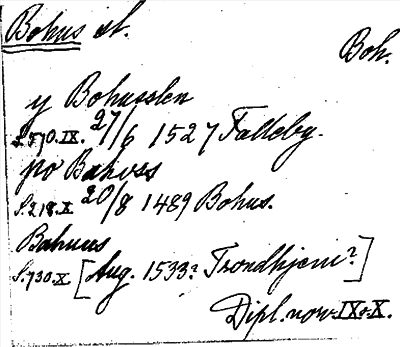 Bohus st.
Boh.
y Bohusslen
S. 570. IX. 27/6 1527 Falleby.
po Bahoss
S. 218. X 20/8 1489 Bohus.
Bahuus
S. 730. X [Aug. 1533? Trondhjem?]
Dipl. norv. IX o. X.